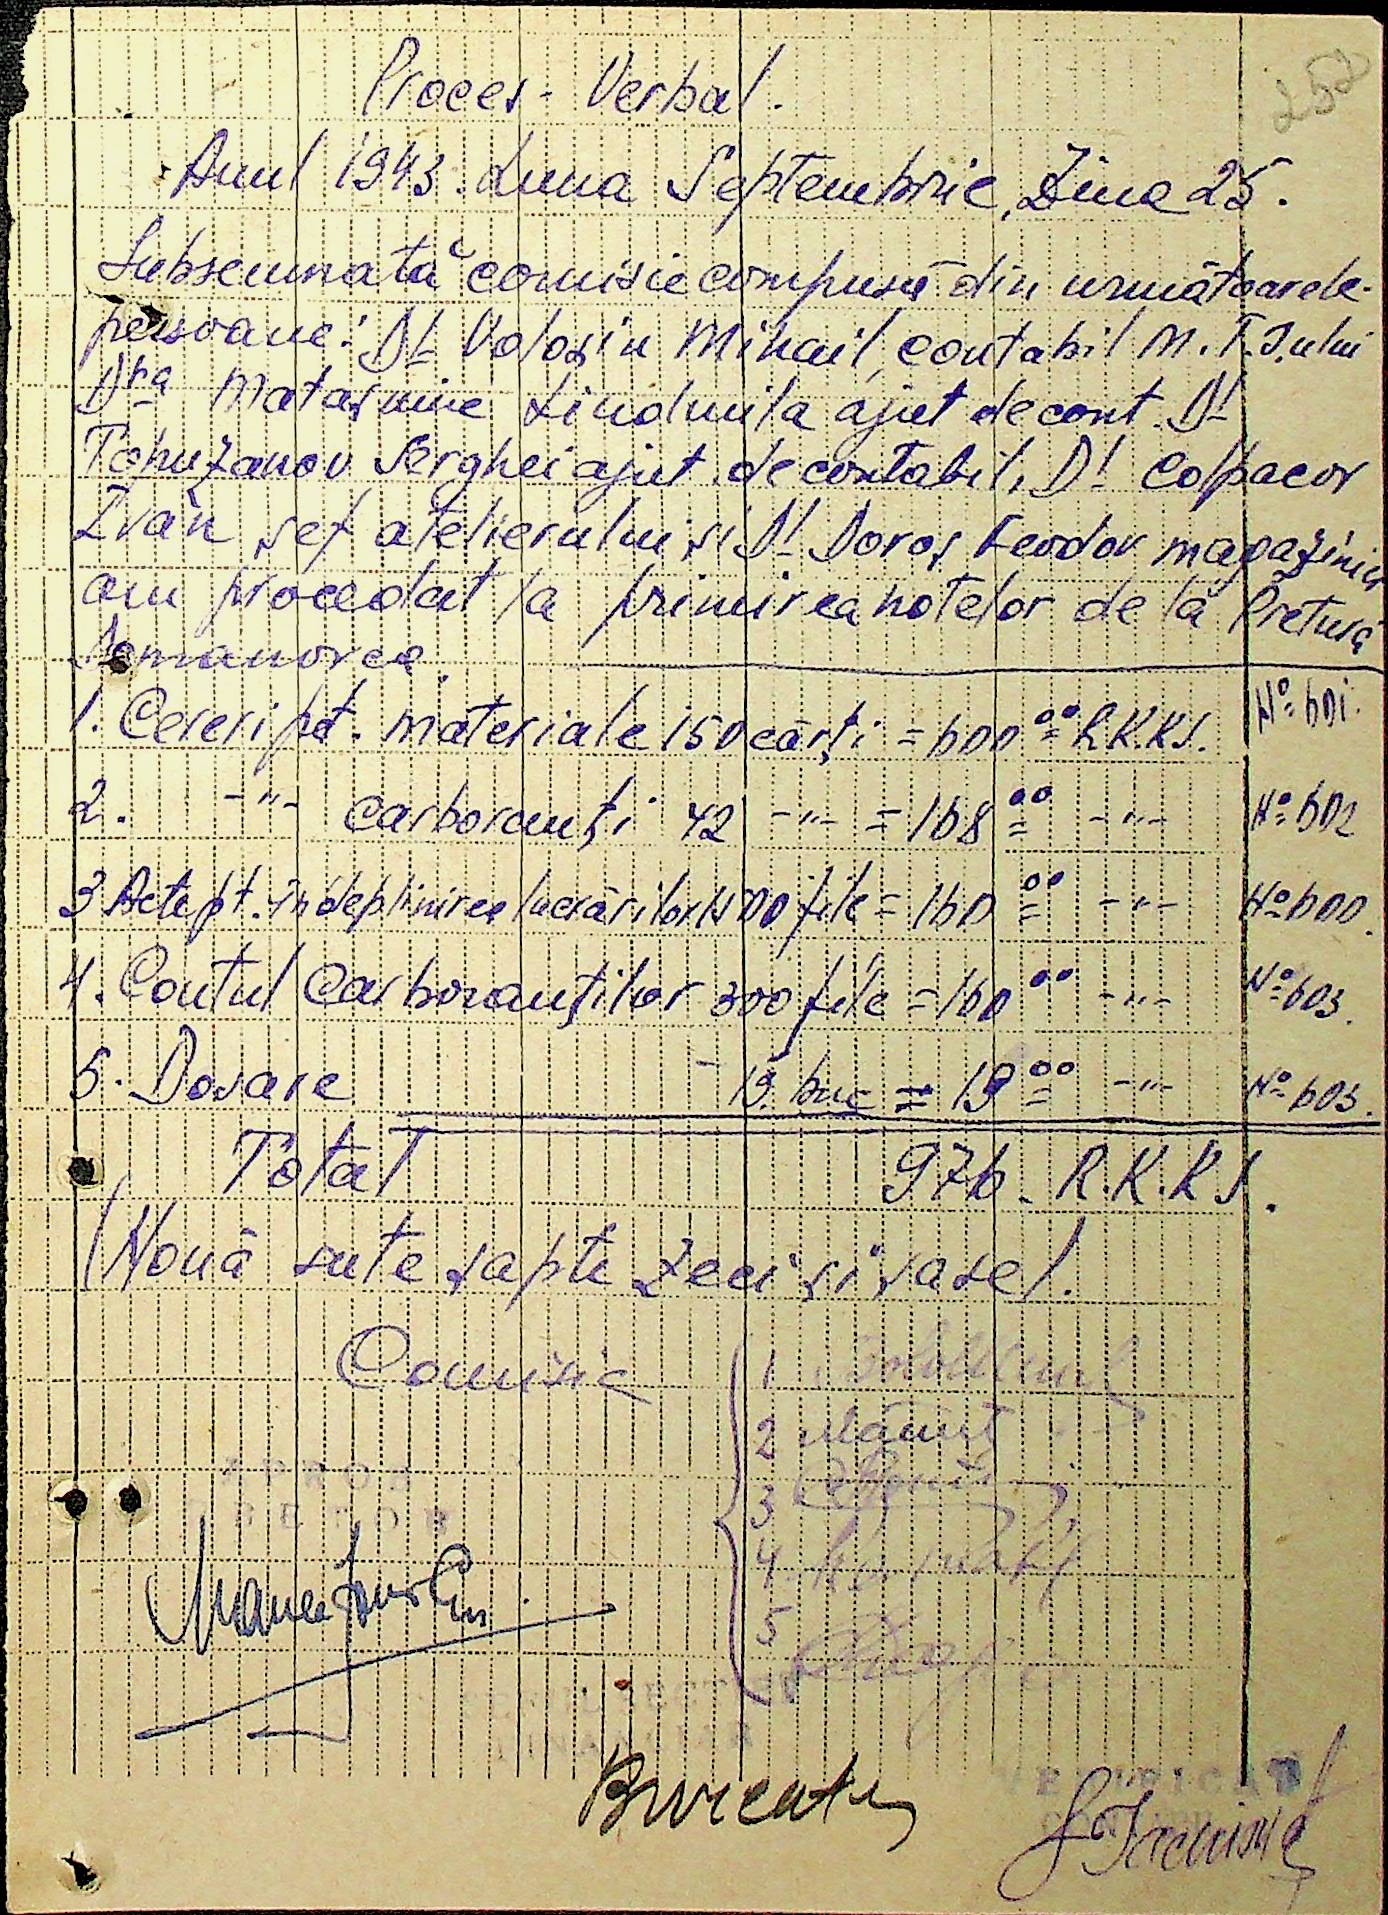 257
Proces-Verbal.
Anul 1943. Luna Septembrie, Ziua 25.
Subsemnată comisie compusă din următoarele
persoane: Dl Voloșin Mihail, contabil M.T.S.ului
Dra Matașnine Liudmila ajut de cont. Dl
Serghei ajut. de contabil, Dl Colpacov
Ivan, șef atelierului, și Dl Doroș Feodor magaziner
am procedat la primirea notelor de la Pretură
1. Cereri pt. materiale 150 cărți = 600 00 R.K.K.S. No 601.
2. -"- carboranți 42 -"- = 168 00 -"- No 602
3 Acte pt. îndeplinirea lucrărilor 400 file = 160 00 -"- No 600.
4. Contul Carboranților 300 file = 160 00 -"- No 603.
5. Dosare - 19 buc = 19 00 -"- No 603.
Total 976. R.K.K.S.
(Nouă sute șapte zeci și șase).
Comisie
1
2
3
4
5
APROB
PRETOR
VERIFICAT